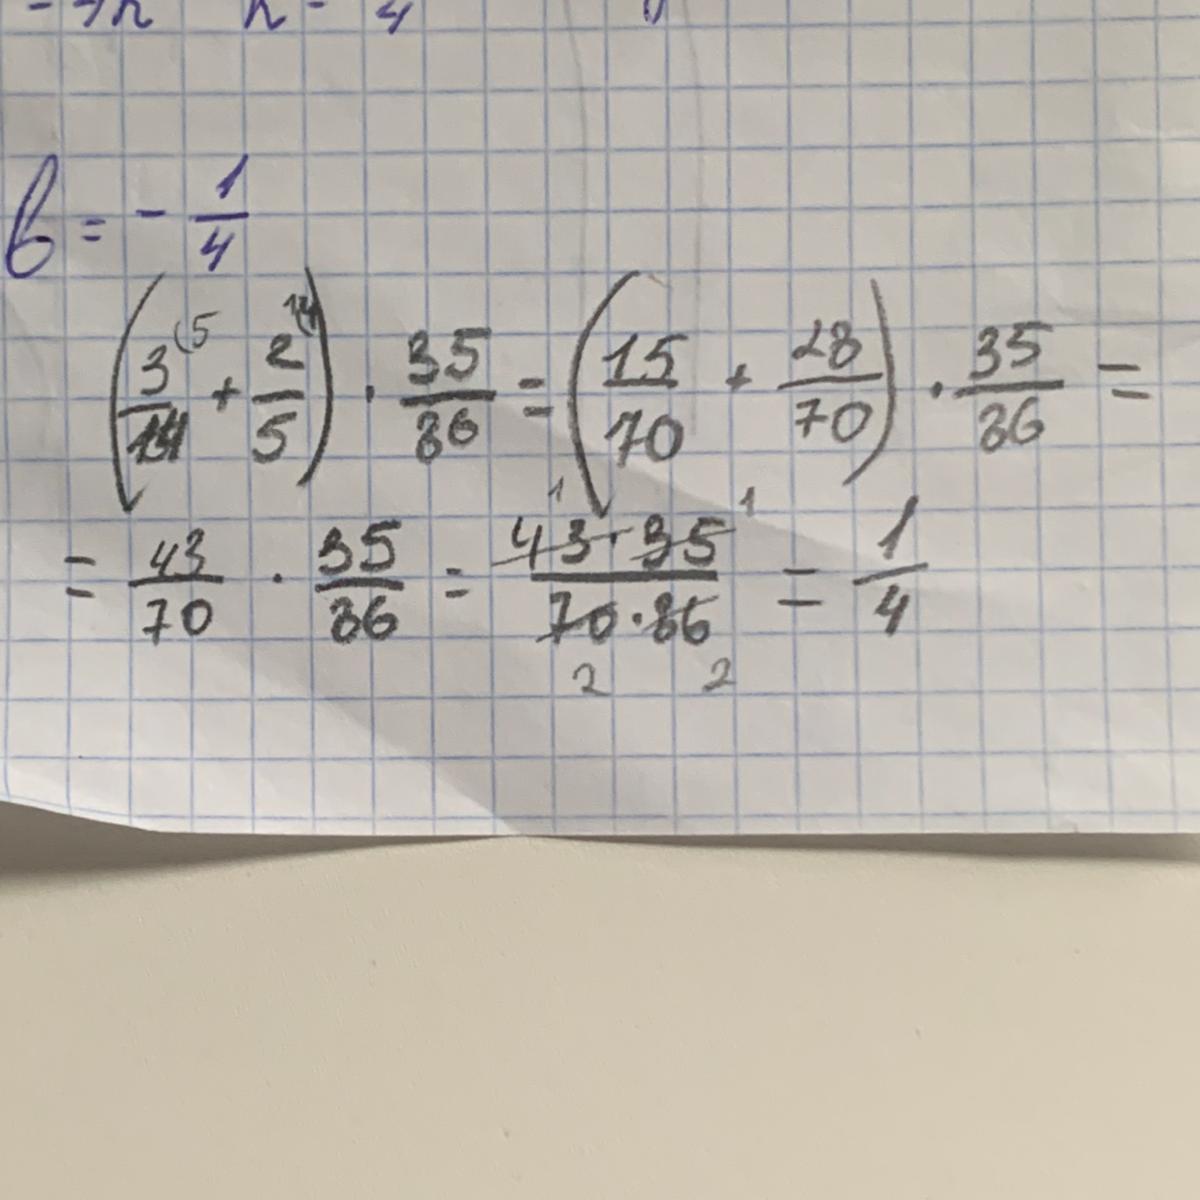 b = - 1/4
(3/14 (5 + 2/5 (14) · 35/86 = (15/70 + 28/70) · 35/86 =
= 43/70 · 35/86 = 43 1 · 35 1 / 70 2 · 86 2 = 1/4